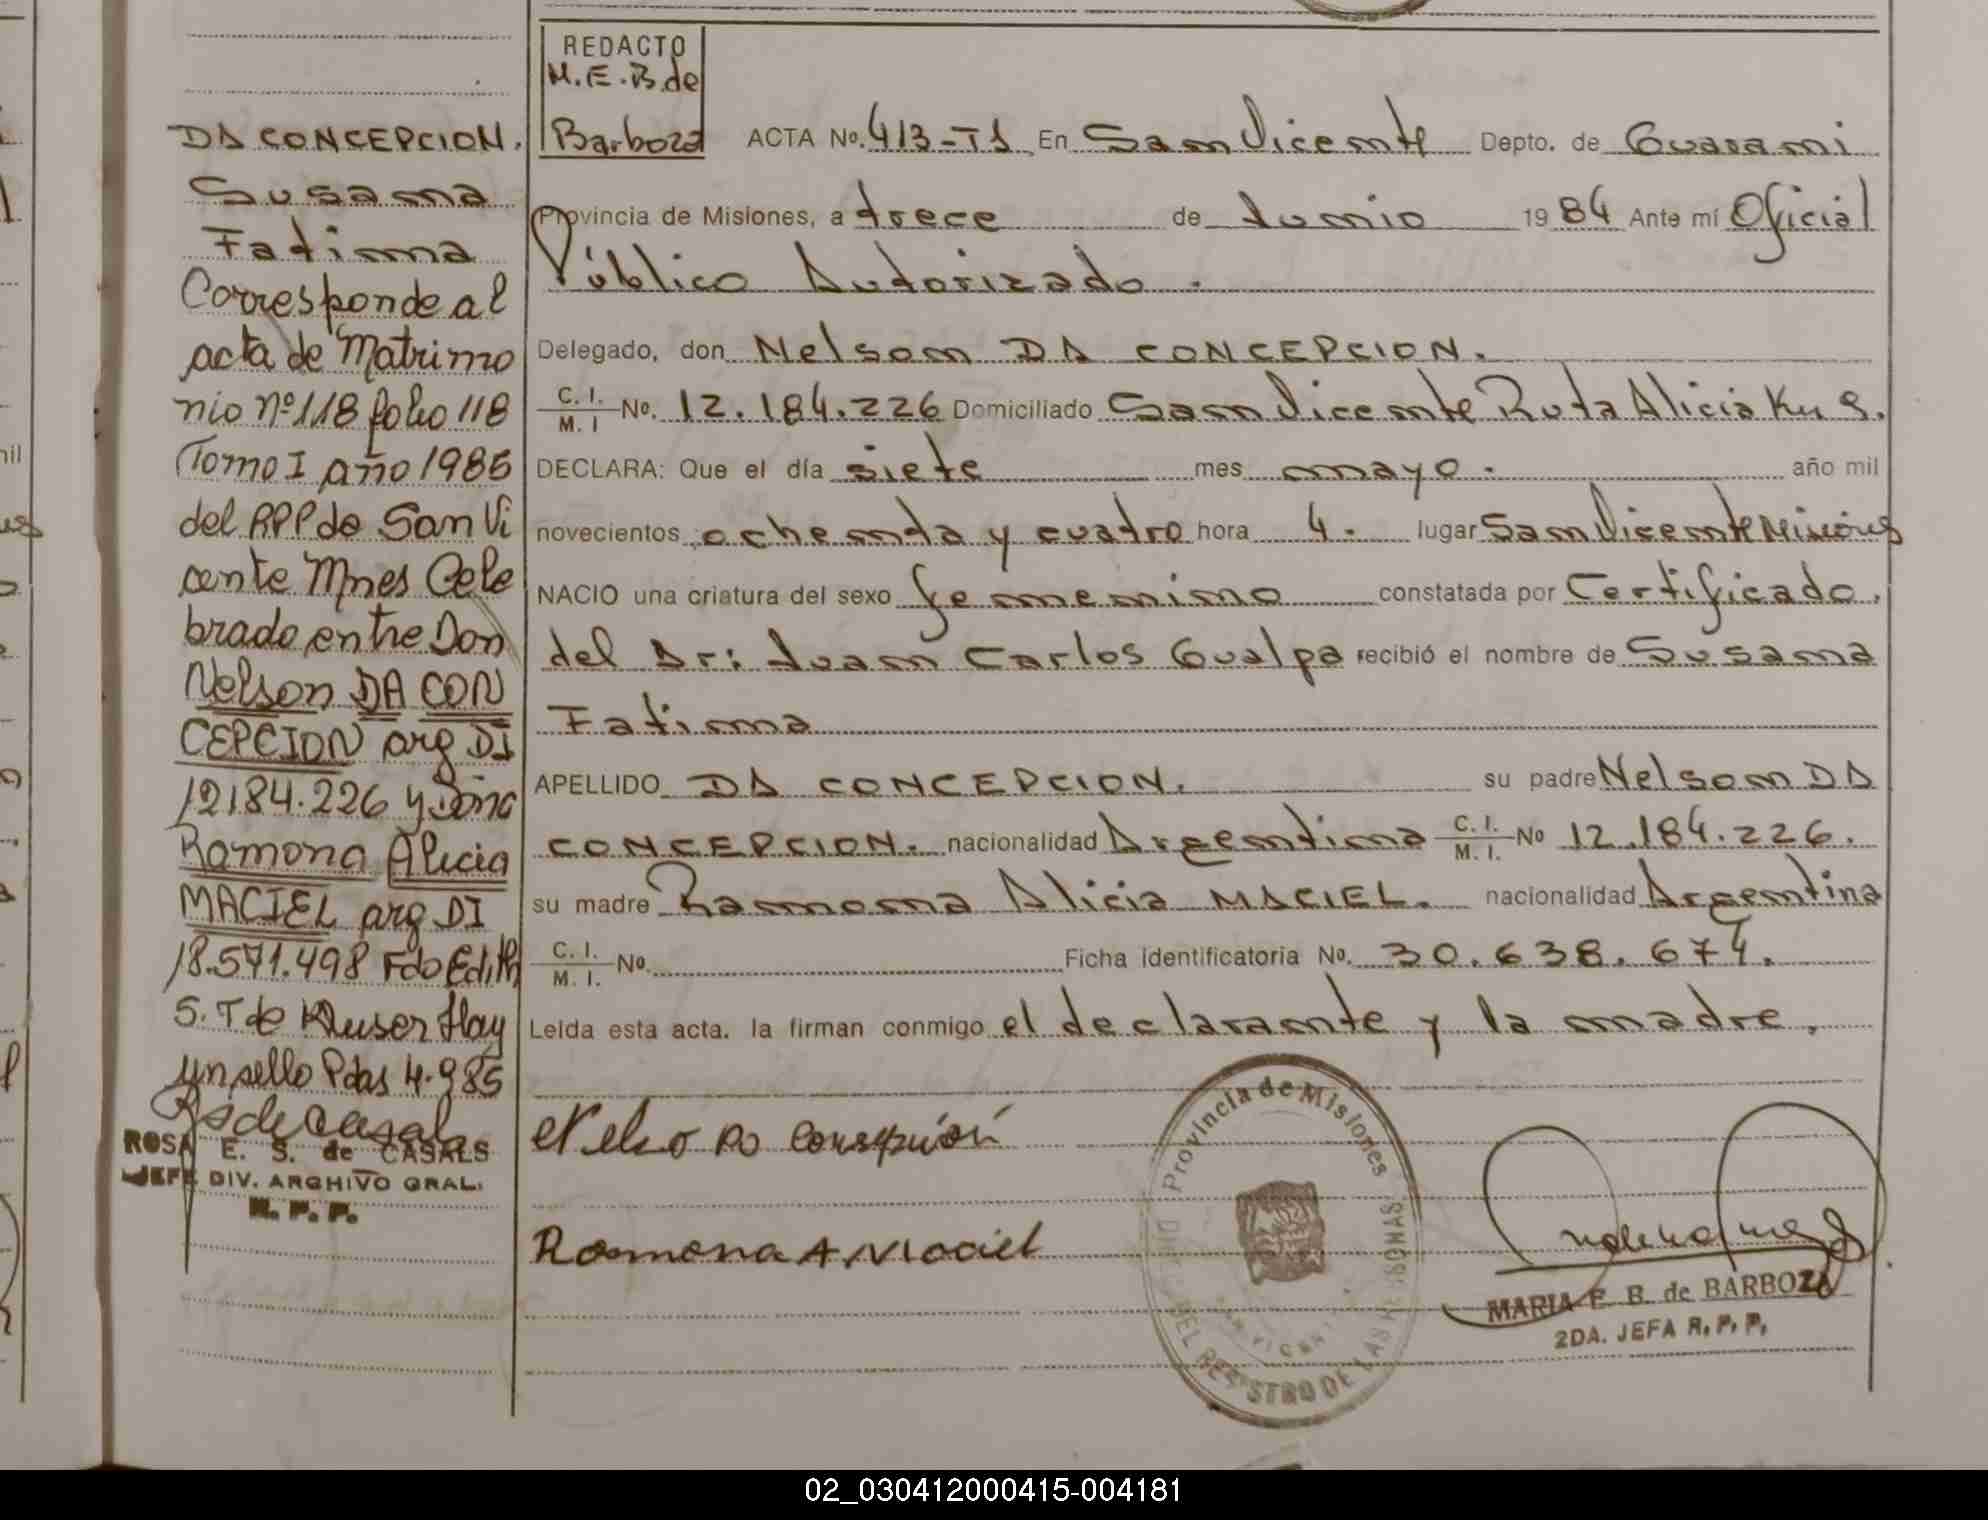 DA CONCEPCION.
Susana
Fatima
Corresponde al
acta de Matrimo
nio nº 118 folio 118
Tomo I año 1985
del RPP de San Vi
cente Mnes Cele
brado entre Don
Nelson DA CON
CEPCION arg DI
12184.226 y Doña
Ramona Alicia
MACIEL arg DI
18.571.498 Fdo Edith
S. T de Kluser Hay
un sello Pdas 4.985
Rs de Casals
ROSA E. S. de CASALS
JEFE DIV. ARCHIVO GRAL.
R. P. P.
REDACTO
M.E.B. de
Barboza
ACTA Nº. 413-T1 En San Vicente Depto. de Guarani
Provincia de Misiones, a trece de Junio 1984 Ante mí Oficial
Público Autorizado.
Delegado, don Nelson DA CONCEPCION.
C. I.
M. I No. 12.184.226 Domiciliado San Vicente Ruta Alicia Km 9.
DECLARA: Que el día siete mes mayo. año mil
novecientos ochenta y cuatro hora 4. lugar San Vicente Misiones
NACIO una criatura del sexo femenino constatada por Certificado.
del Dr: Juan Carlos Gualpa recibió el nombre de Susana
Fatima
APELLIDO DA CONCEPCION. su padre Nelson DA
CONCEPCION. nacionalidad Argentina C. I.
M. I. Nº 12.184.226.
su madre Ramona Alicia MACIEL. nacionalidad Argentina
C. I.
M. I. No. Ficha identificatoria No. 30.638.674.
Leida esta acta. la firman conmigo el declarante y la madre.
Nelso Da Consepción
Ramona A Maciel
Provincia de Misiones
DEL REGISTRO DE LAS PERSONAS
SAN VICENTE
MARIA E. B. de BARBOZA
2DA. JEFA R. P. P.
02_030412000415-004181